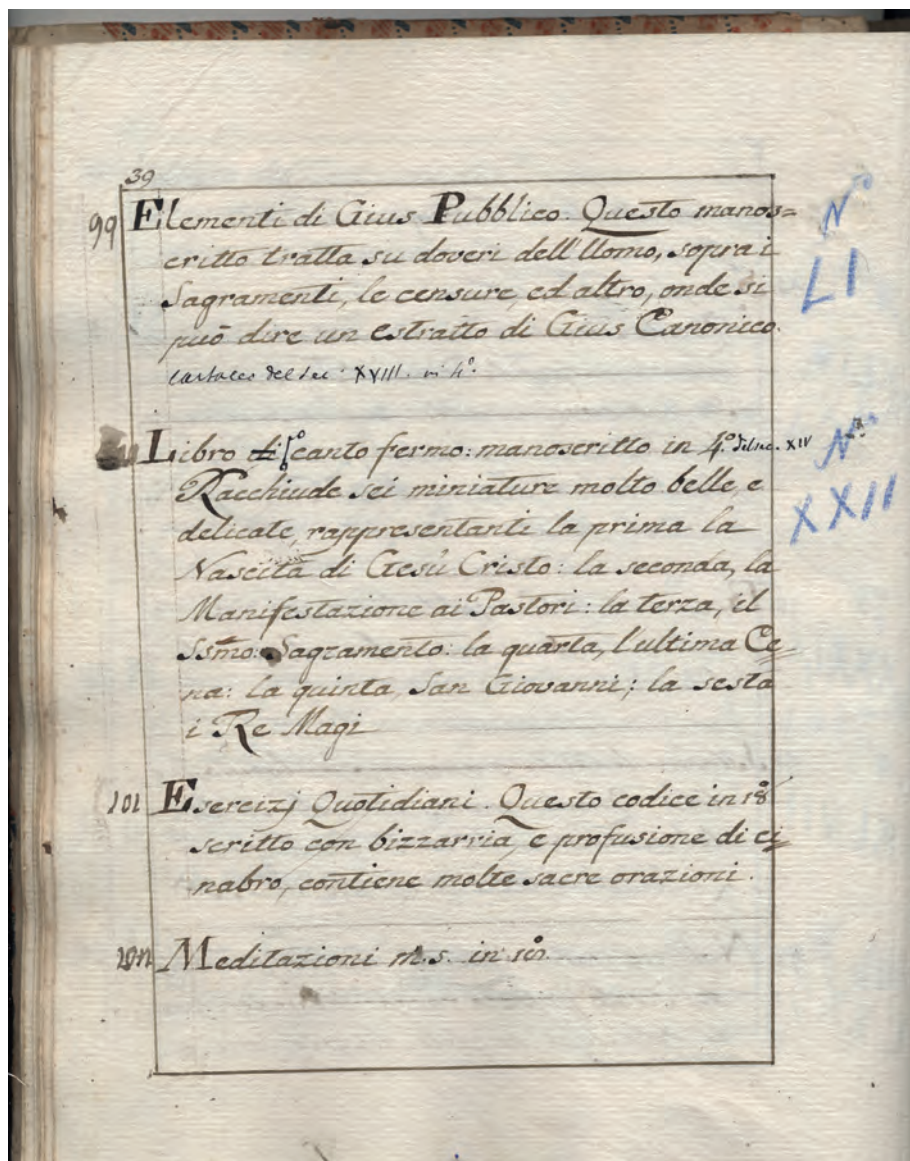 39
99 Elementi di Gius Pubblico. Questo manos=
critto tratta su doveri dell'Uomo, sopra i
Sagramenti, le censure, ed altro, onde si
può dire un estratto di Gius Canonico.
cartaceo del sec. XVIII. in 4º.
Nº
LI
Libro di canto fermo: manoscritto in 4º. del sec. XIV
Racchiude sei miniature molto belle, e
delicate, rappresentanti la prima la
Nascita di Gesù Cristo: la seconda, la
Manifestazione ai Pastori: la terza, il
Ssmo: Sagramento: la quarta, l'ultima Ce=
na: la quinta, San Giovanni; la sesta
i Re Magi
Nº
XXII
101 Esercizj Quotidiani. Questo codice in 18º
scritto con bizzarria, e profusione di ci=
nabro, contiene molte sacre orazioni.
Meditazioni m.s. in